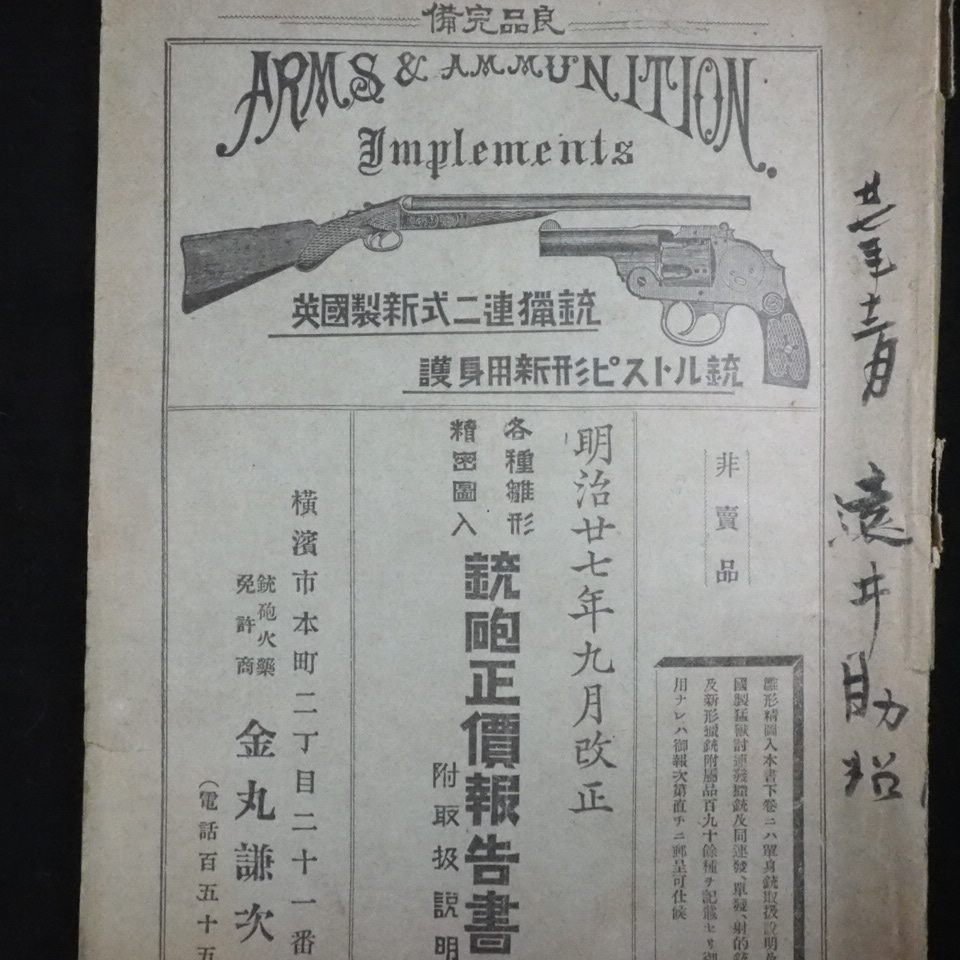 良品完備
ARMS & AMMUNITION.
Implements
英國製新式二連獵銃
護身用新形ピストル銃
非賣品
雛形精圖入本書下卷ニハ單身銃取扱説明及
國製猛獸討連發獵銃及同連發、單發、射的銃
及新形獵銃附屬品百九十餘種ヲ記載セリ御
用ナレハ御報次第直チニ郵呈可仕候
明治廿七年九月改正
各種雛形
精密圖入
銃砲正價報告書
附取扱説明
橫濱市本町二丁目二十一番
銃砲火藥
免許商
金丸謙次
(電話百五十五
廿七年十二月
遠井助